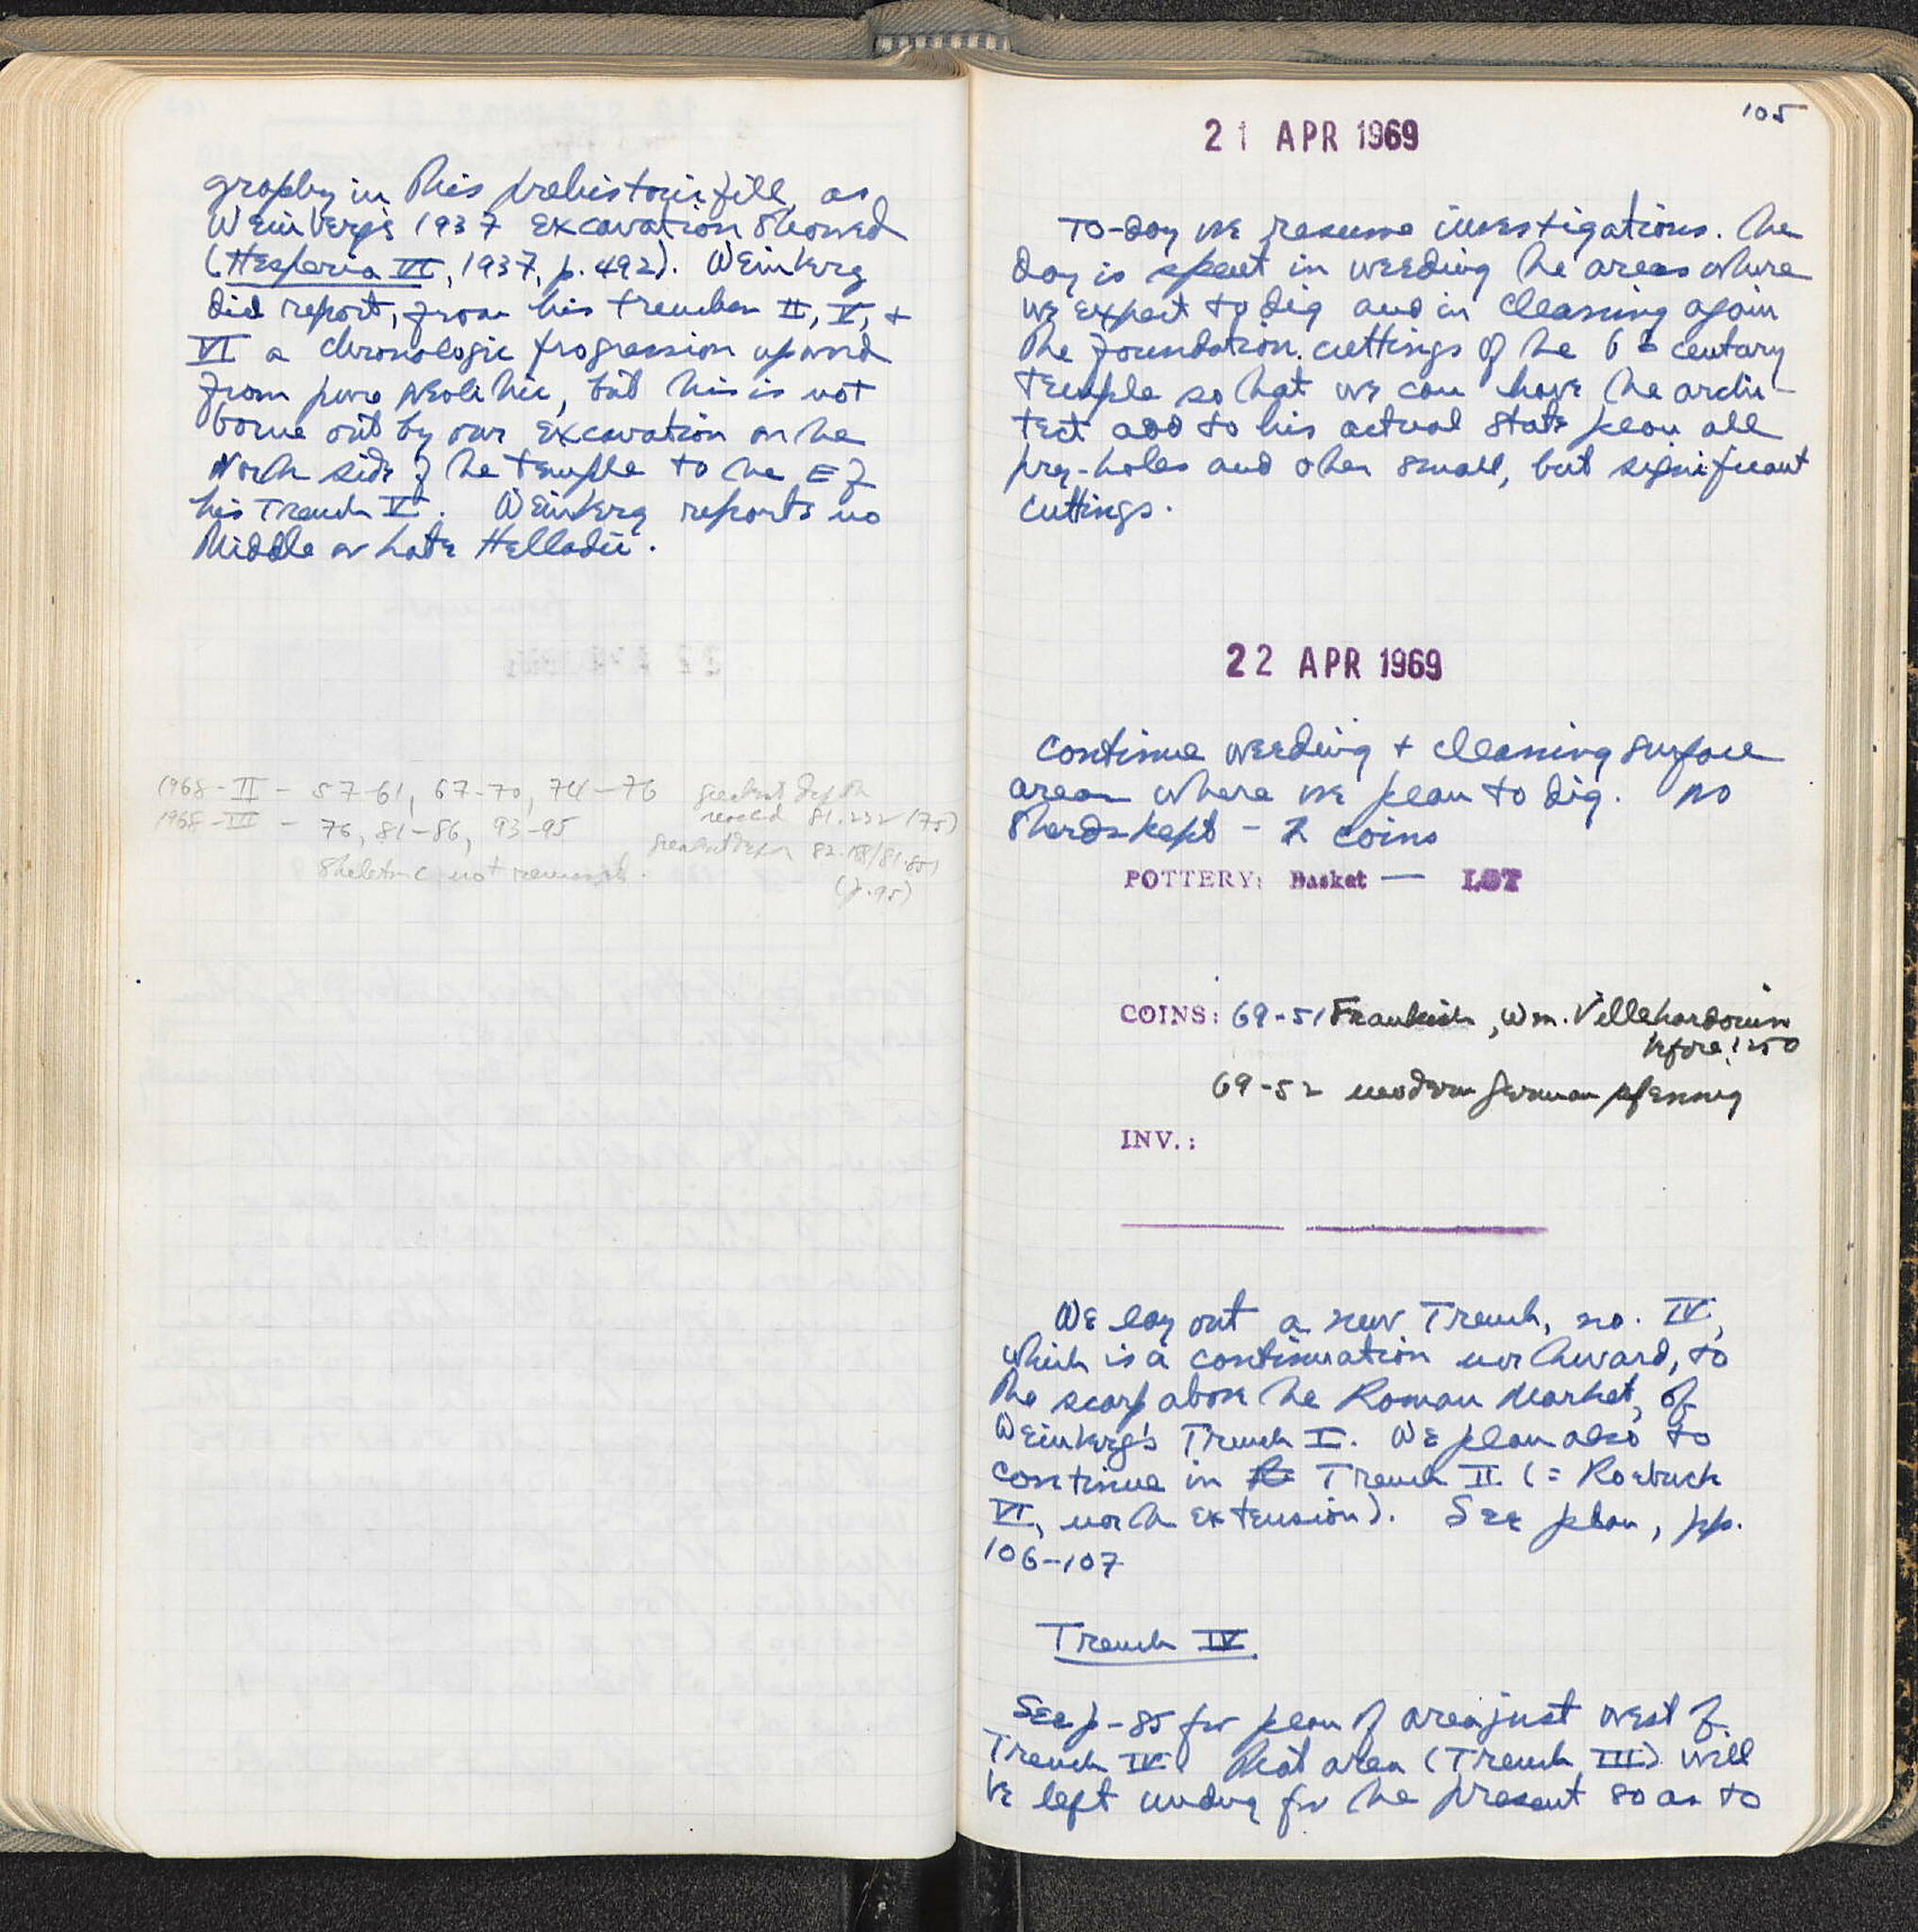 graphy in this prehistoric fill, as
Weinberg's 1937 excavation showed
(Hesperia VI, 1937, p. 492). Weinberg
did report, from his trenches II, V, +
VI a chronologic progression upward
from pure Neolithic, but this is not
borne out by our excavation on the
North side of the temple to the E of
his Trench V. Weinberg reports no
Middle or Late Helladic.
1968-II - 57-61, 67-70, 74-76 greatest depth
reached 81.232 (75)
1968-III - 76, 81-86, 93-95
greatest depth 82.188/81.851
Skeleton C not removed.
(p.95)
105
21 APR 1969
To-day we resume investigations. The
day is spent in weeding the areas where
we expect to dig and in cleaning again
the foundation cuttings of the 6th century
temple so that we can have the archi-
tect add to his actual state plan all
pry-holes and other small, but significant
cuttings.
22 APR 1969
Continue weeding + cleaning surface
areas where we plan to dig. No
sherds kept - 2 coins
POTTERY: Basket — LOT
COINS: 69-51 Frankish, Wm. Villehardouin
before 1250
69-52 modern German pfennig
INV.:
We lay out a new Trench, no. IV,
which is a continuation northward, to
the scarp above the Roman Market, of
Weinberg's Trench I. We plan also to
continue in the Trench II (= Roebuck
VI, north extension). See plan, pp.
106-107
Trench IV
See p. 85 for plan of area just west of
Trench IV. That area (Trench III) will
be left undug for the present so as to